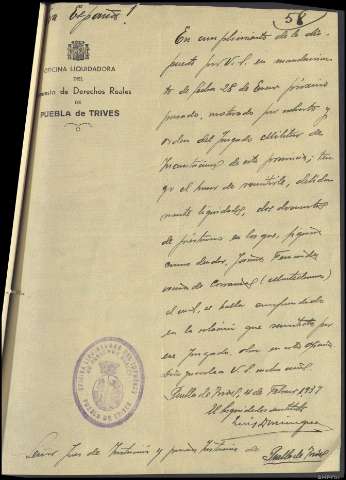 58
¡Arriba España!
OFICINA LIQUIDADORA
DEL
Impuesto de Derechos Reales
DE
PUEBLA DE TRIVES
En cumplimiento de lo dis-
puesto por V. S. en mandamien-
to de fecha 28 de Enero próximo
pasado, motivado por exhorto y
orden del Juzgado Militar de
Incautaciones de esta provincia; ten-
go el honor de remitirle, debida-
mente liquidados, dos documentos
de préstamo en los que figura
como deudor, Jaime Fernández
vecino de
el cual, se halla comprendido
en la relación que remitida por
ese Juzgado, obra en esta oficina
Dios guarde a V. S. muchos años.
Puebla de Trives, 4 de Febrero 1937
El Liquidador sustituto
Luis Domínguez
Señor Juez de Instrucción y primera Instancia de Puebla de Trives
PUEBLA DE TRIVES